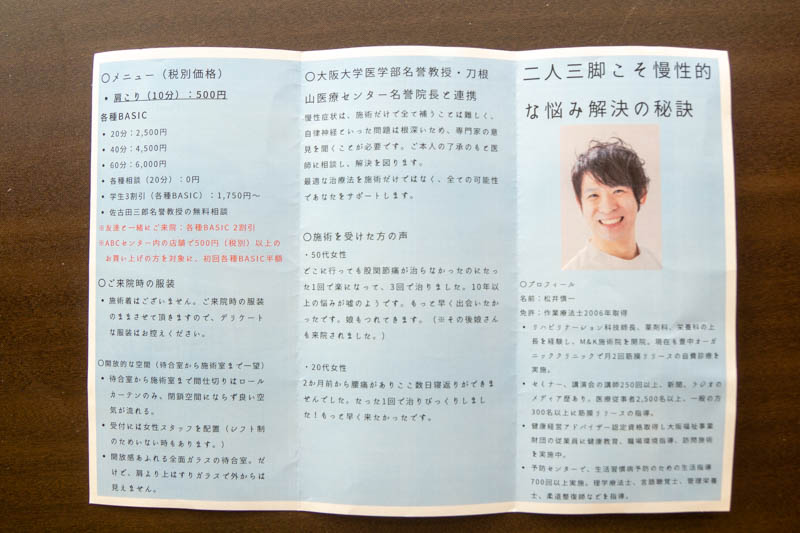 〇メニュー（税別価格）
• 肩こり（10分）：500円
各種BASIC
• 20分：2,500円
• 40分：4,500円
• 60分：6,000円
• 各種相談（20分）：0円
• 学生3割引（各種BASIC）：1,750円～
• 佐古田三郎名誉教授の無料相談
※友達と一緒にご来院：各種BASIC 2割引
※ABCセンター内の店舗で500円（税別）以上の
お買い上げの方を対象に、初回各種BASIC半額
〇ご来院時の服装
• 施術着はございません。ご来院時の服装
のままさせて頂きますので、デリケート
な服装はお控えください。
〇開放的な空間（待合室から施術室まで一望）
• 待合室から施術室まで間仕切りはロール
カーテンのみ、閉鎖空間にならず良い空
気が流れる。
• 受付には女性スタッフを配置（シフト制
のためいない時もあります。）
• 開放感あふれる全面ガラスの待合室。だ
けど、肩より上はすりガラスで外からは
見えません。
〇大阪大学医学部名誉教授・刀根
山医療センター名誉院長と連携
慢性症状は、施術だけで全て補うことは難しく、
自律神経といった問題は根深いため、専門家の意
見を聞くことが必要です。ご本人の了承のもと医
師に相談し、解決を図ります。
最適な治療法を施術だけではなく、全ての可能性
であなたをサポートします。
〇施術を受けた方の声
・50代女性
どこに行っても股関節痛が治らなかったのにたっ
た1回で楽になって、3回で治りました。10年以
上の悩みが嘘のようです。もっと早く出会いたか
ったです。娘もつれてきます。（※その後娘さん
も来院されました。）
・20代女性
2か月前から腰痛がありここ数日寝返りができま
せんでした。たった1回で治りびっくりしまし
た！もっと早く来たかったです。
二人三脚こそ慢性的
な悩み解決の秘訣
〇プロフィール
名前：松井慎一
免許：作業療法士2006年取得
• リハビリテーション科技師長、薬剤科、栄養科の上
長を経験し、M&K施術院を開院。現在も豊中オーガ
ニッククリニックで月2回筋膜リリースの自費診療を
実施。
• セミナー、講演会の講師250回以上、新聞、ラジオの
メディア歴あり。医療従事者2,500名以上、一般の方
300名以上に筋膜リリースの指導。
• 健康経営アドバイザー認定資格取得し大阪福祉事業
財団の従業員に健康教育、職場環境指導、訪問施術
を実施中。
• 予防センターで、生活習慣病予防のための生活指導
700回以上実施。理学療法士、言語聴覚士、管理栄養
士、柔道整復師などを指導。